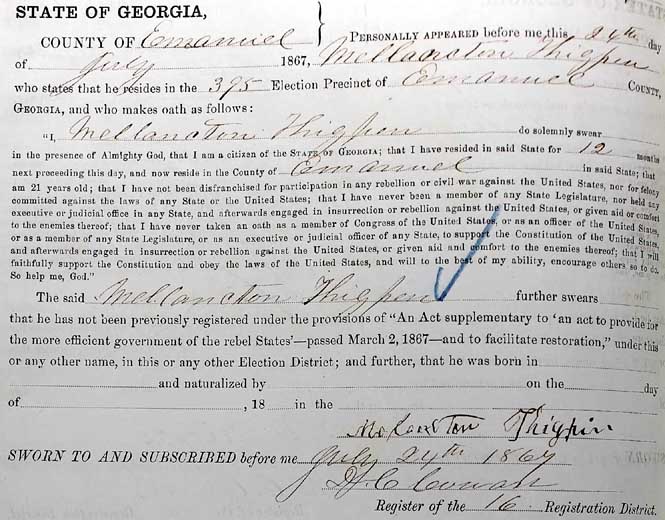 STATE OF GEORGIA,
COUNTY OF Emanuel } PERSONALLY APPEARED before me this 24th day
of July 1867, Mellancton Thigpen
who states that he resides in the 395 Election Precinct of Emanuel COUNTY,
GEORGIA, and who makes oath as follows:
"I, Mellancton Thigpen do solemnly swear
in the presence of Almighty God, that I am a citizen of the STATE OF GEORGIA; that I have resided in said State for 12 months
next preceeding this day, and now reside in the County of Emanuel in said State; that
am 21 years old; that I have not been disfranchised for participation in any rebellion or civil war against the United States, nor for felony
committed against the laws of any State or the United States; that I have never been a member of any State Legislature, nor held any
executive or judicial office in any State, and afterwards engaged in insurrection or rebellion against the United States, or given aid or comfort
to the enemies thereof; that I have never taken an oath as a member of Congress of the United States, or as an officer of the United States,
or as a member of any State Legislature, or as an executive or judicial officer of any State, to support the Constitution of the United States,
and afterwards engaged in insurrection or rebellion against the United States, or given aid and comfort to the enemies thereof; that I will
faithfully support the Constitution and obey the laws of the United States, and will to the best of my ability, encourage others so to do.
So help me, God."
The said Mellancton Thigpen further swears
that he has not been previously registered under the provisions of "An Act supplementary to 'an act to provide for
the more efficient government of the rebel States'—passed March 2, 1867—and to facilitate restoration," under this
or any other name, in this or any other Election District; and further, that he was born in
and naturalized by on the day
of , 18 in the
Thigpin
SWORN TO AND SUBSCRIBED before me July 24th 1867
Cowan
Register of the 16 Registration District.